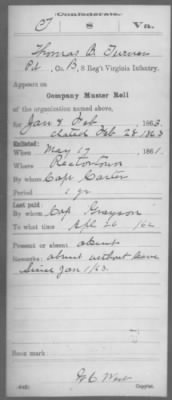 Confederate.
T 8 Va.
Thomas B Turner
Pt, Co. B, 8 Reg't Virginia Infantry.
Appears on
Company Muster Roll
of the organization named above,
for Jan & Feb, 1863.
dated Feb 28 1863
Enlisted:
When May 17, 1861.
Where Rectortown
By whom Capt Carter
Period 1 yr
Last paid:
By whom Cap Grayson
To what time Apl 26 /62
Present or absent absent
Remarks: absent without leave
Since Jan 1/63.
Book mark:
(642)
Copyist.